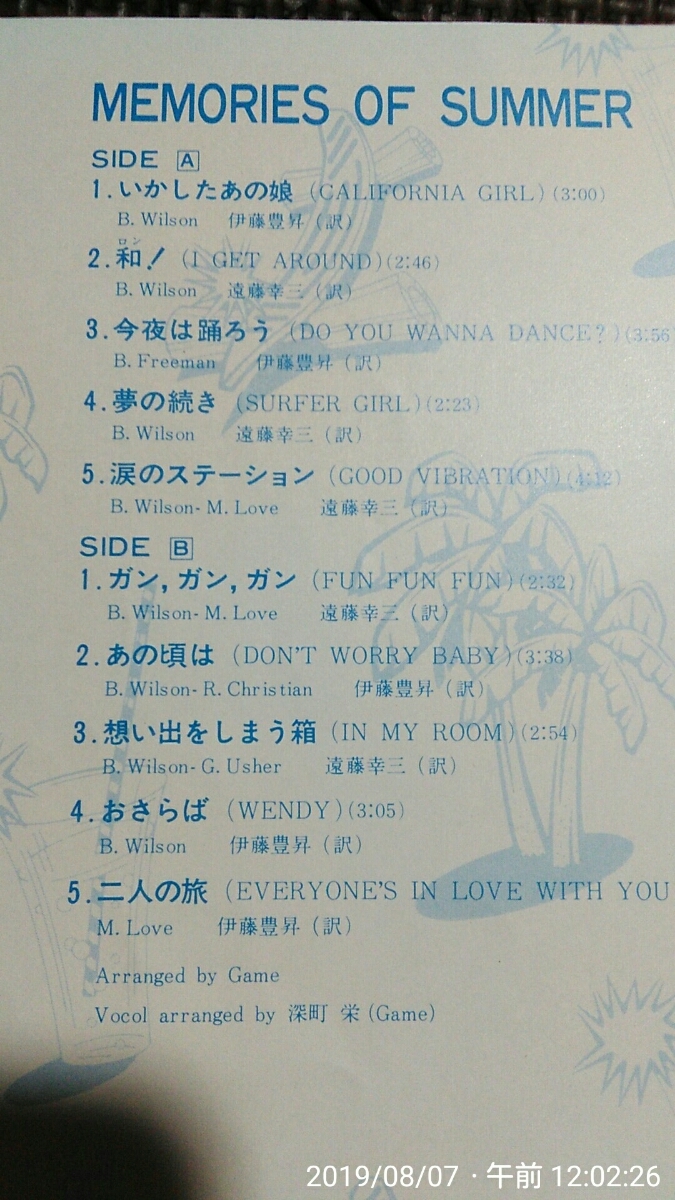 MEMORIES OF SUMMER
SIDE A
1.いかしたあの娘 (CALIFORNIA GIRL)(3:00)
B. Wilson 伊藤豊昇(訳)
ロン
2.和! (I GET AROUND)(2:46)
B. Wilson 遠藤幸三(訳)
3.今夜は踊ろう (DO YOU WANNA DANCE?)(3:56
B. Freeman 伊藤豊昇(訳)
4.夢の続き (SURFER GIRL)(2:23)
B. Wilson 遠藤幸三(訳)
5.涙のステーション (GOOD VIBRATION)(4:12)
B. Wilson- M. Love 遠藤幸三(訳)
SIDE B
1.ガン,ガン,ガン (FUN FUN FUN)(2:32)
B. Wilson- M. Love 遠藤幸三(訳)
2.あの頃は (DON'T WORRY BABY)(3:38)
B. Wilson- R. Christian 伊藤豊昇(訳)
3.想い出をしまう箱 (IN MY ROOM)(2:54)
B. Wilson- G. Usher 遠藤幸三(訳)
4.おさらば (WENDY)(3:05)
B. Wilson 伊藤豊昇(訳)
5.二人の旅 (EVERYONE'S IN LOVE WITH YOU
M. Love 伊藤豊昇(訳)
Arranged by Game
Vocol arranged by 深町 栄(Game)
2019/08/07・午前 12:02:26